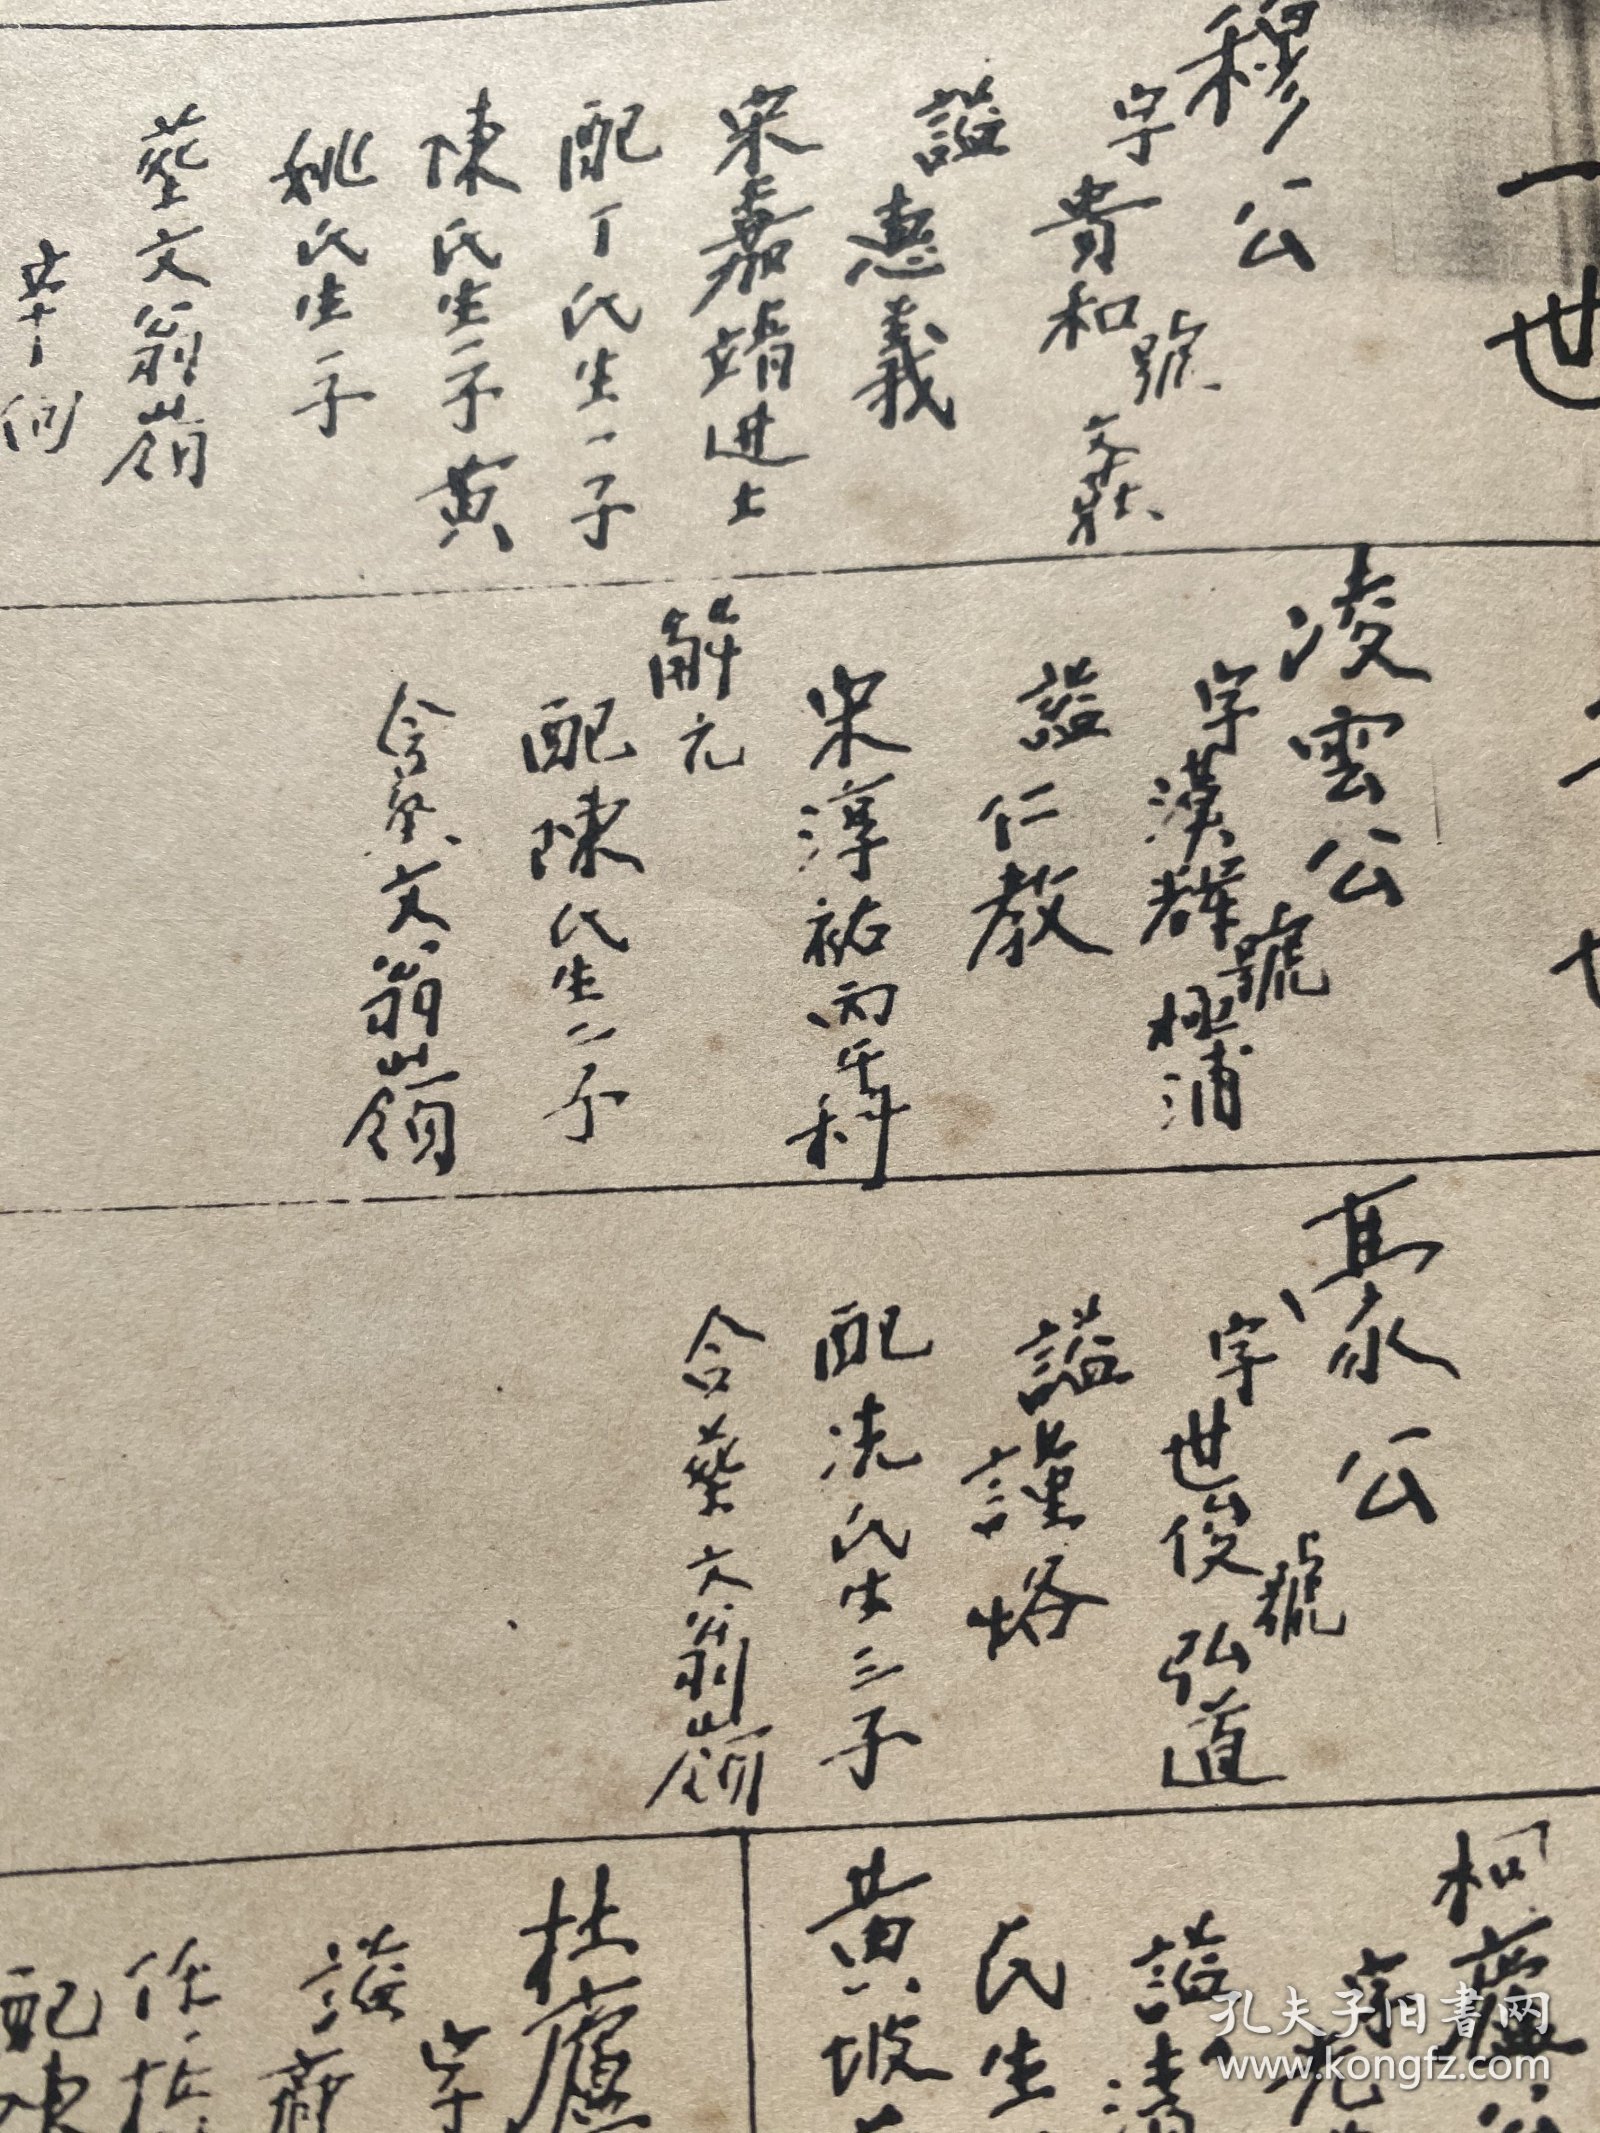 一世
穆公
字貴和號
謚惠義
宋嘉靖進士
配丁氏生一子
陳氏生一子黄
姚氏生一子
葬文翁嶺
凌雲公
字漢輝號極浦
謚仁教
宋淳祐丙午科
解元
配陳氏生二子
合葬文翁嶺
豪公
字世俊號弘道
謚謹恪
配冼氏生三子
合葬文翁嶺
謚清
氏生
黄坡
杜廬
字
謚
配陳
孔夫子旧书网
www.kongfz.com